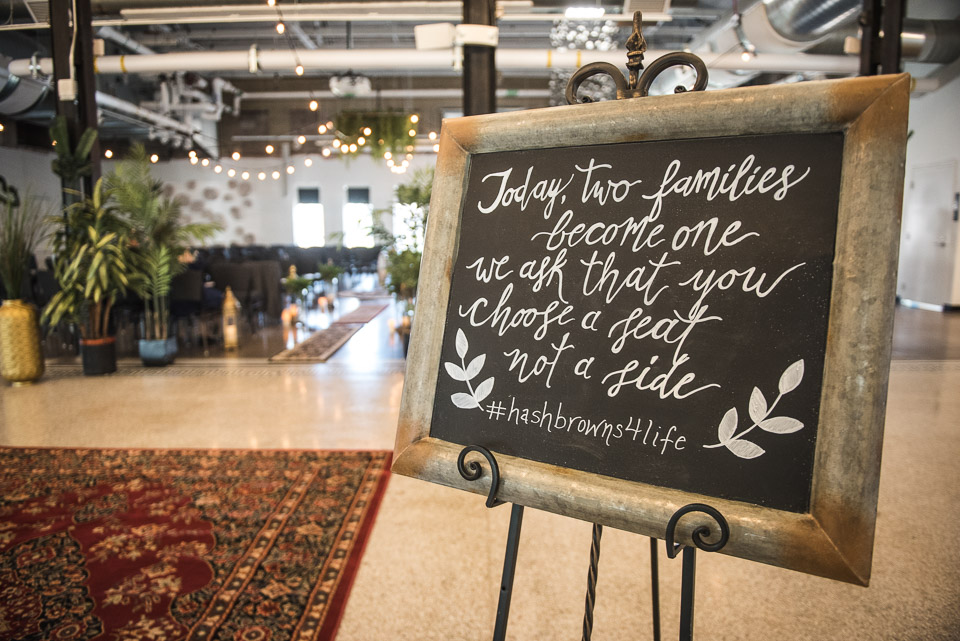 Today, two families
become one
we ask that you
choose a seat
not a side
#hashbrowns4life